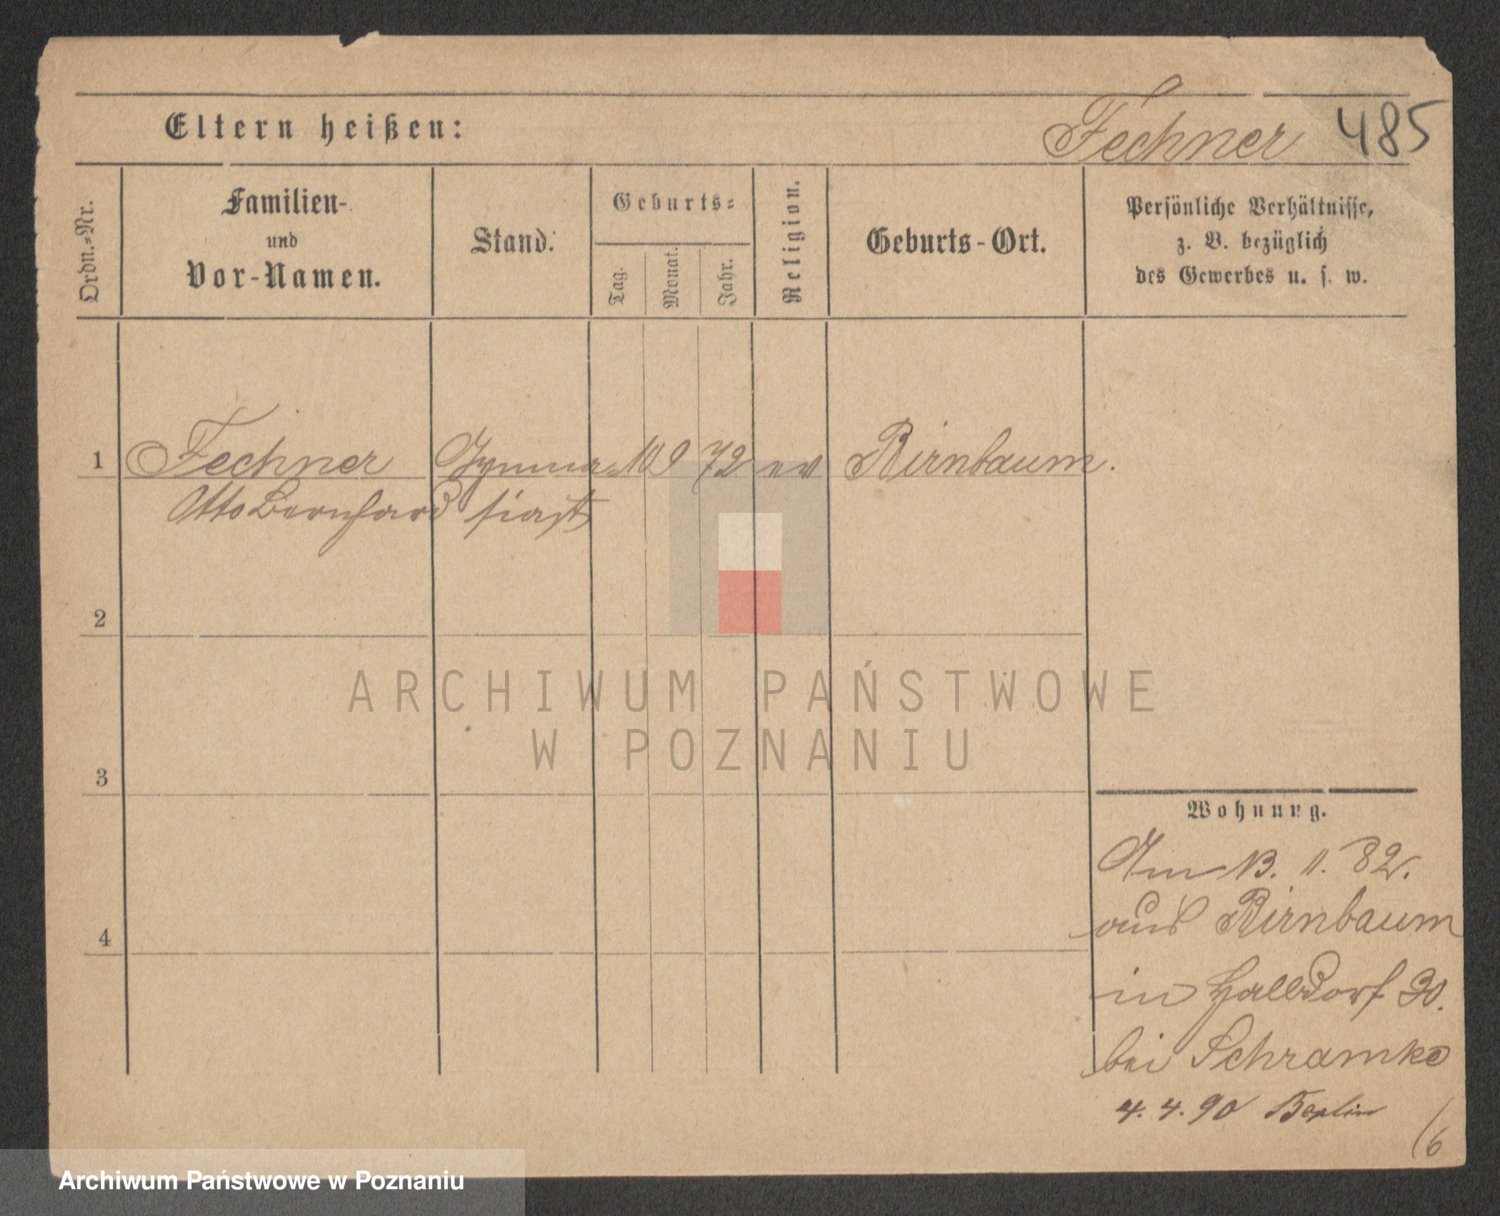 Eltern heißen:
Fechner 485
Ordn.-Nr.
Familien-
und
Vor-Namen.
Stand.
Geburts-
Tag.
Monat.
Jahr.
Religion.
Geburts-Ort.
Persönliche Verhältnisse,
z. B. bezüglich
des Gewerbes u. s. w.
1 Fechner Gymna- 10 9 72 ev Birnbaum.
Otto Bernhard siast
2
3
4
ARCHIWUM PAŃSTWOWE
W POZNANIU
Wohnung.
Am 13. 11. 82.
aus Birnbaum
in Halbdorf 30.
bei Schramke
4. 4. 90 Berlin
6
Archiwum Państwowe w Poznaniu